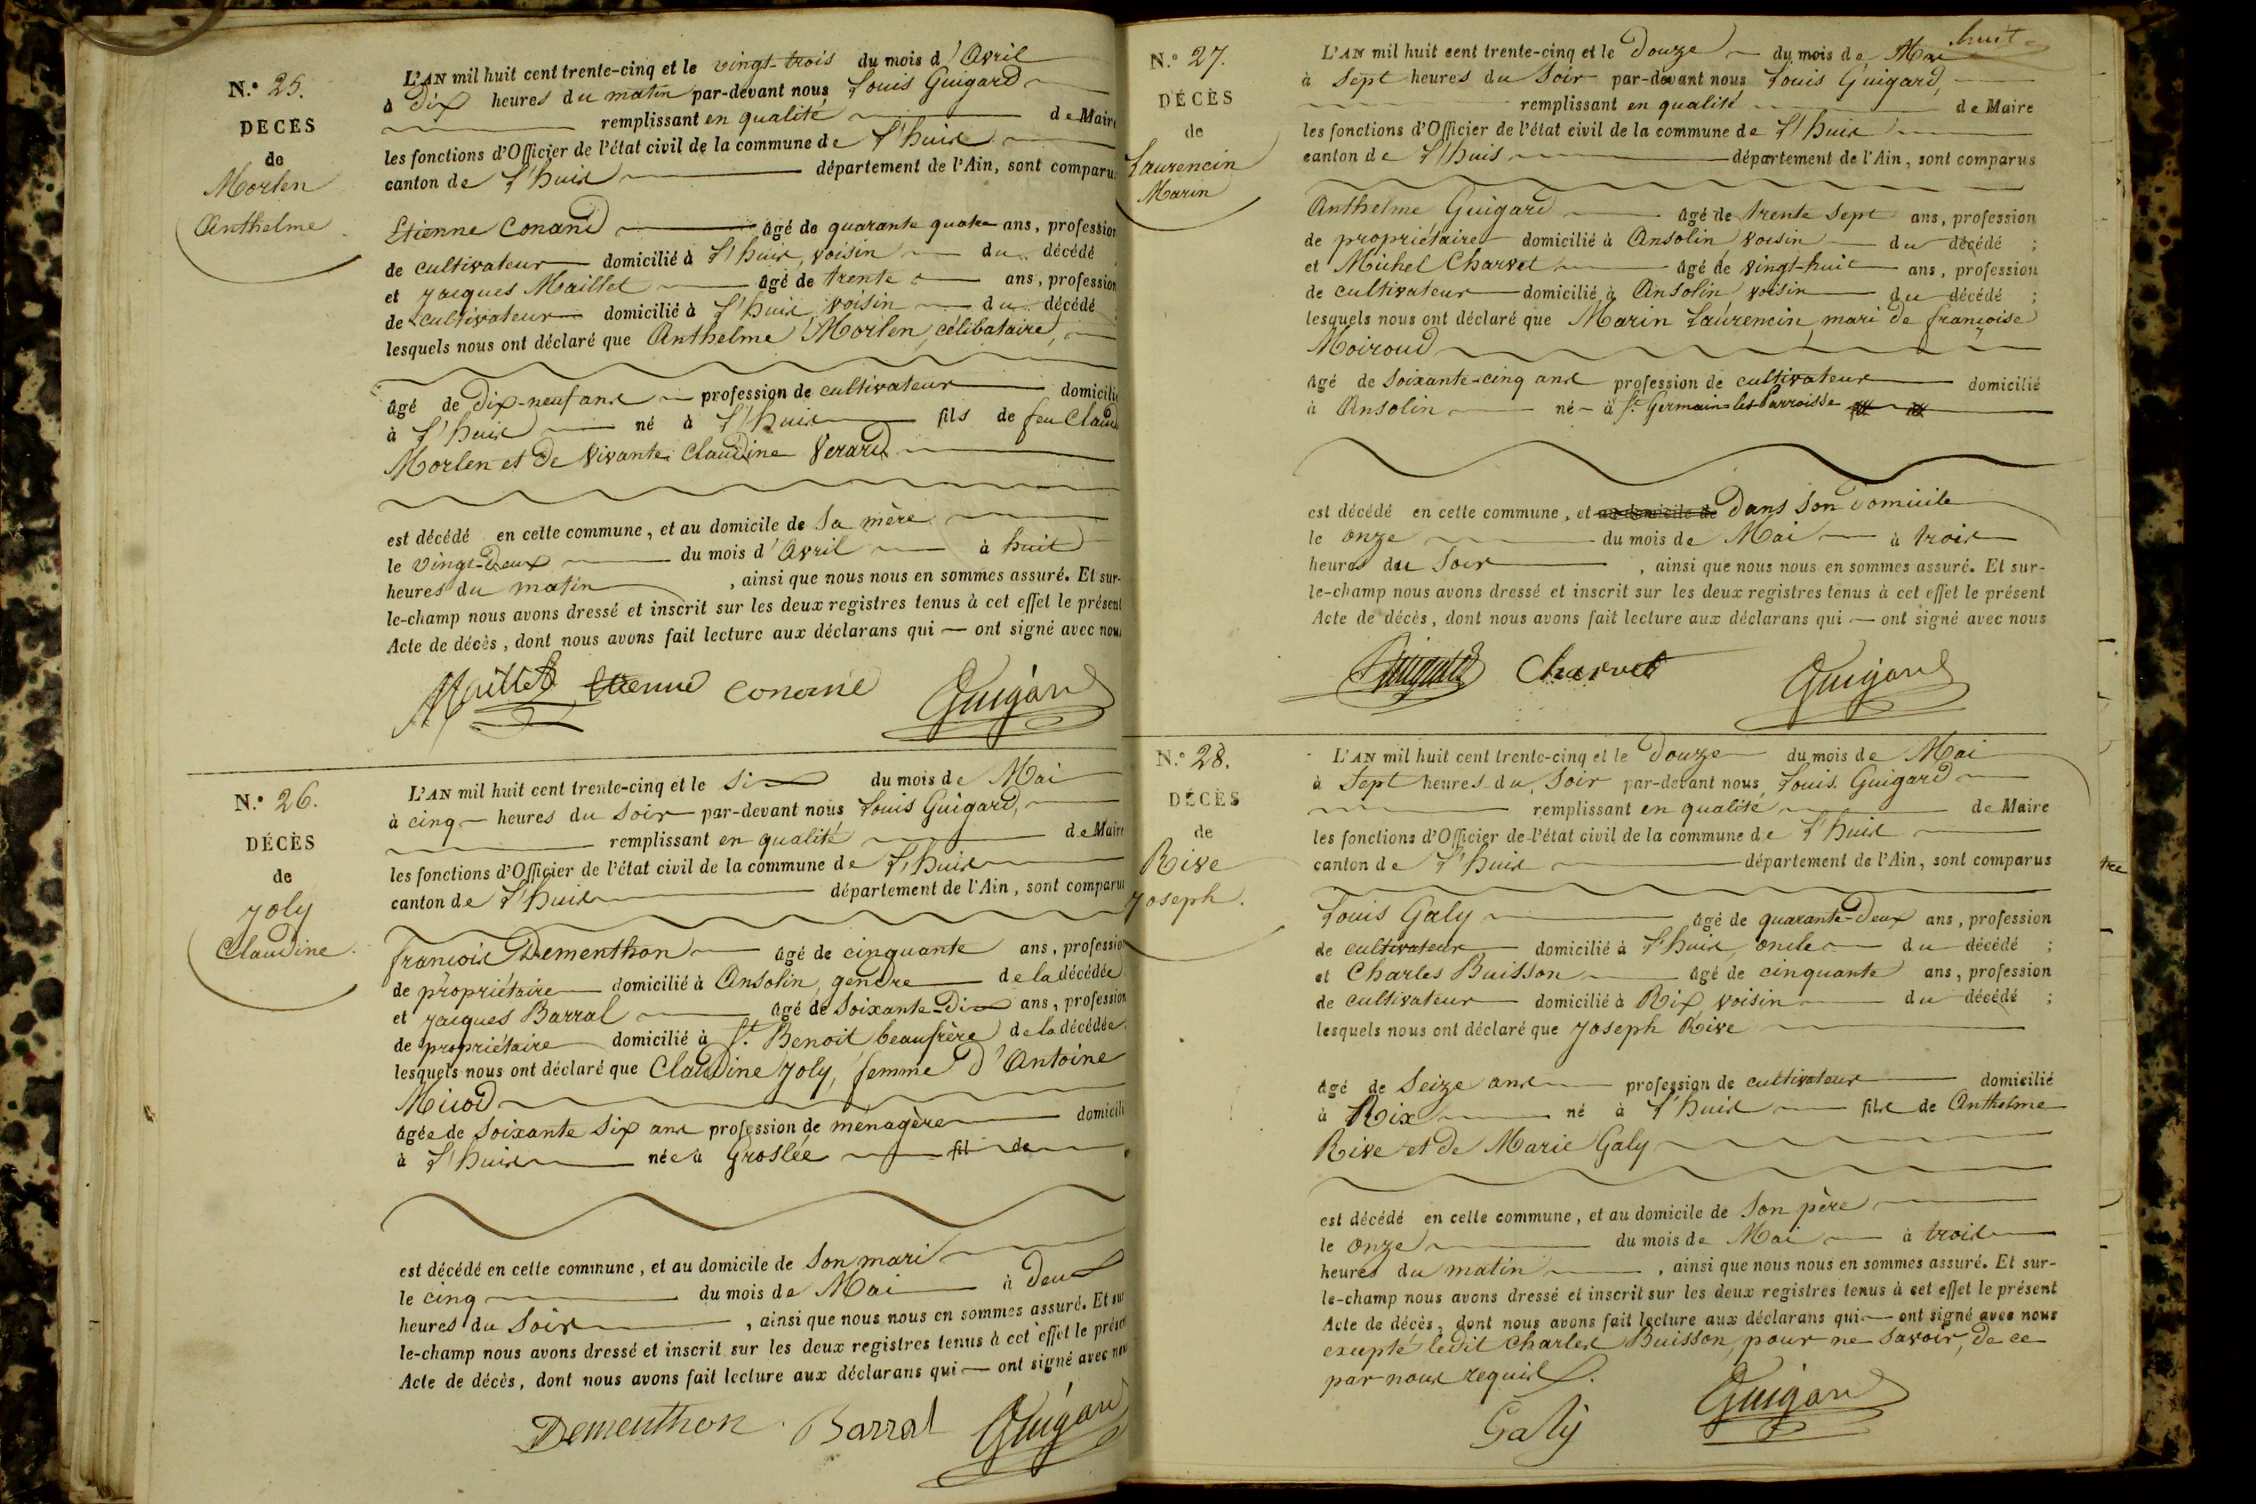 N.° 25.
DÉCÈS
de
Morlen
Anthelme
L'AN mil huit cent trente-cinq et le vingt-trois du mois d'Avril
à Dix heures du matin par-devant nous Louis Guigard
remplissant en qualité de Maire
les fonctions d'Officier de l'état civil de la commune de L'huis
canton de L'huis département de l'Ain, sont comparus
Etienne Conand âgé de quarante quatre ans, profession
de cultivateur domicilié à L'huis, voisin du décédé
et Jacques Maillet âgé de trente ans, profession
de cultivateur domicilié à L'huis, voisin du décédé
lesquels nous ont déclaré que Anthelme Morlen, célibataire,
âgé de Dix-neuf ans profession de cultivateur domicilié
à L'huis né à L'huis fils de feu Claude
Morlen et de vivante Claudine Verard
est décédé en cette commune, et au domicile de Sa mère
le vingt-Deux du mois d'Avril à huit
heures du matin, ainsi que nous nous en sommes assuré. Et sur-
le-champ nous avons dressé et inscrit sur les deux registres tenus à cet effet le présent
Acte de décès, dont nous avons fait lecture aux déclarans qui — ont signé avec nous
Maillet Etienne Conand Guigard
N.° 26.
DÉCÈS
de
Joly
Claudine
L'AN mil huit cent trente-cinq et le Six du mois de Mai
à cinq heures du Soir par-devant nous Louis Guigard,
remplissant en qualité de Maire
les fonctions d'Officier de l'état civil de la commune de L'huis
canton de L'huis département de l'Ain, sont comparus
françois Dementhon âgé de cinquante ans, profession
de propriétaire domicilié à Ansolin, gendre de la décédée
et Jacques Barral âgé de Soixante-Dix ans, profession
de propriétaire domicilié à St. Benoit beaufrère de la décédée
lesquels nous ont déclaré que Claudine Joly, femme d'Antoine
Micod
âgée de Soixante Six ans profession de ménagère domicilié
à L'huis née à Groslée fil de
est décédé en cette commune, et au domicile de Son mari
le cinq du mois de Mai à Deux
heures du Soir, ainsi que nous nous en sommes assuré. Et sur
le-champ nous avons dressé et inscrit sur les deux registres tenus à cet effet le présent
Acte de décès, dont nous avons fait lecture aux déclarans qui — ont signé avec nous
Dementhon Barral Guigard
N.° 27.
DÉCÈS
de
Laurencin
Marin
huit
L'AN mil huit cent trente-cinq et le Douze du mois de Mai
à Sept heures du Soir par-devant nous Louis Guigard,
remplissant en qualité de Maire
les fonctions d'Officier de l'état civil de la commune de L'huis
canton de L'huis département de l'Ain, sont comparus
Anthelme Guigard âgé de trente Sept ans, profession
de propriétaire domicilié à Ansolin voisin du décédé ;
et Michel Charvet âgé de vingt-huit ans, profession
de cultivateur domicilié à Ansolin voisin du décédé ;
lesquels nous ont déclaré que Marin Laurencin, mari de françoise
Moiroud
âgé de Soixante-cinq ans profession de cultivateur domicilié
à Ansolin né à St. Germain-les-Parroisse
est décédé en cette commune, et au domicile de Dans Son Domicile
le onze du mois de Mai à trois
heures du Soir, ainsi que nous nous en sommes assuré. Et sur-
le-champ nous avons dressé et inscrit sur les deux registres tenus à cet effet le présent
Acte de décès, dont nous avons fait lecture aux déclarans qui — ont signé avec nous
Guigard Charvet Guigard
N.° 28.
DÉCÈS
de
Rive
Joseph.
L'AN mil huit cent trente-cinq et le Douze du mois de Mai
à Sept heures du Soir par-devant nous Louis Guigard
remplissant en qualité de Maire
les fonctions d'Officier de l'état civil de la commune de L'huis
canton de L'huis département de l'Ain, sont comparus
Louis Galy âgé de quarante-Deux ans, profession
de cultivateur domicilié à L'huis, oncle du décédé ;
et Charles Buisson âgé de cinquante ans, profession
de cultivateur domicilié à Rix, voisin du décédé ;
lesquels nous ont déclaré que Joseph Rive
âgé de Seize ans profession de cultivateur domicilié
à Rix né à L'huis fils de Anthelme
Rive et de Marie Galy
est décédé en cette commune, et au domicile de Son père
le onze du mois de Mai à trois
heures du matin, ainsi que nous nous en sommes assuré. Et sur-
le-champ nous avons dressé et inscrit sur les deux registres tenus à cet effet le présent
Acte de décès, dont nous avons fait lecture aux déclarans qui — ont signé avec nous
excepté ledit Charles Buisson, pour ne Savoir, de ce
par nous requis.
Galy Guigard